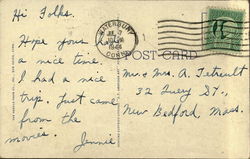 Hi Folks.
WATERBURY
JUL 7
1944
CONN.
Hope your having
a nice time.
I had a nice
trip. Just came
from the
movies.
Jennie
POST CARD
Mr & Mrs. A. Tetreult
32 St.,
New Bedford, Mass.